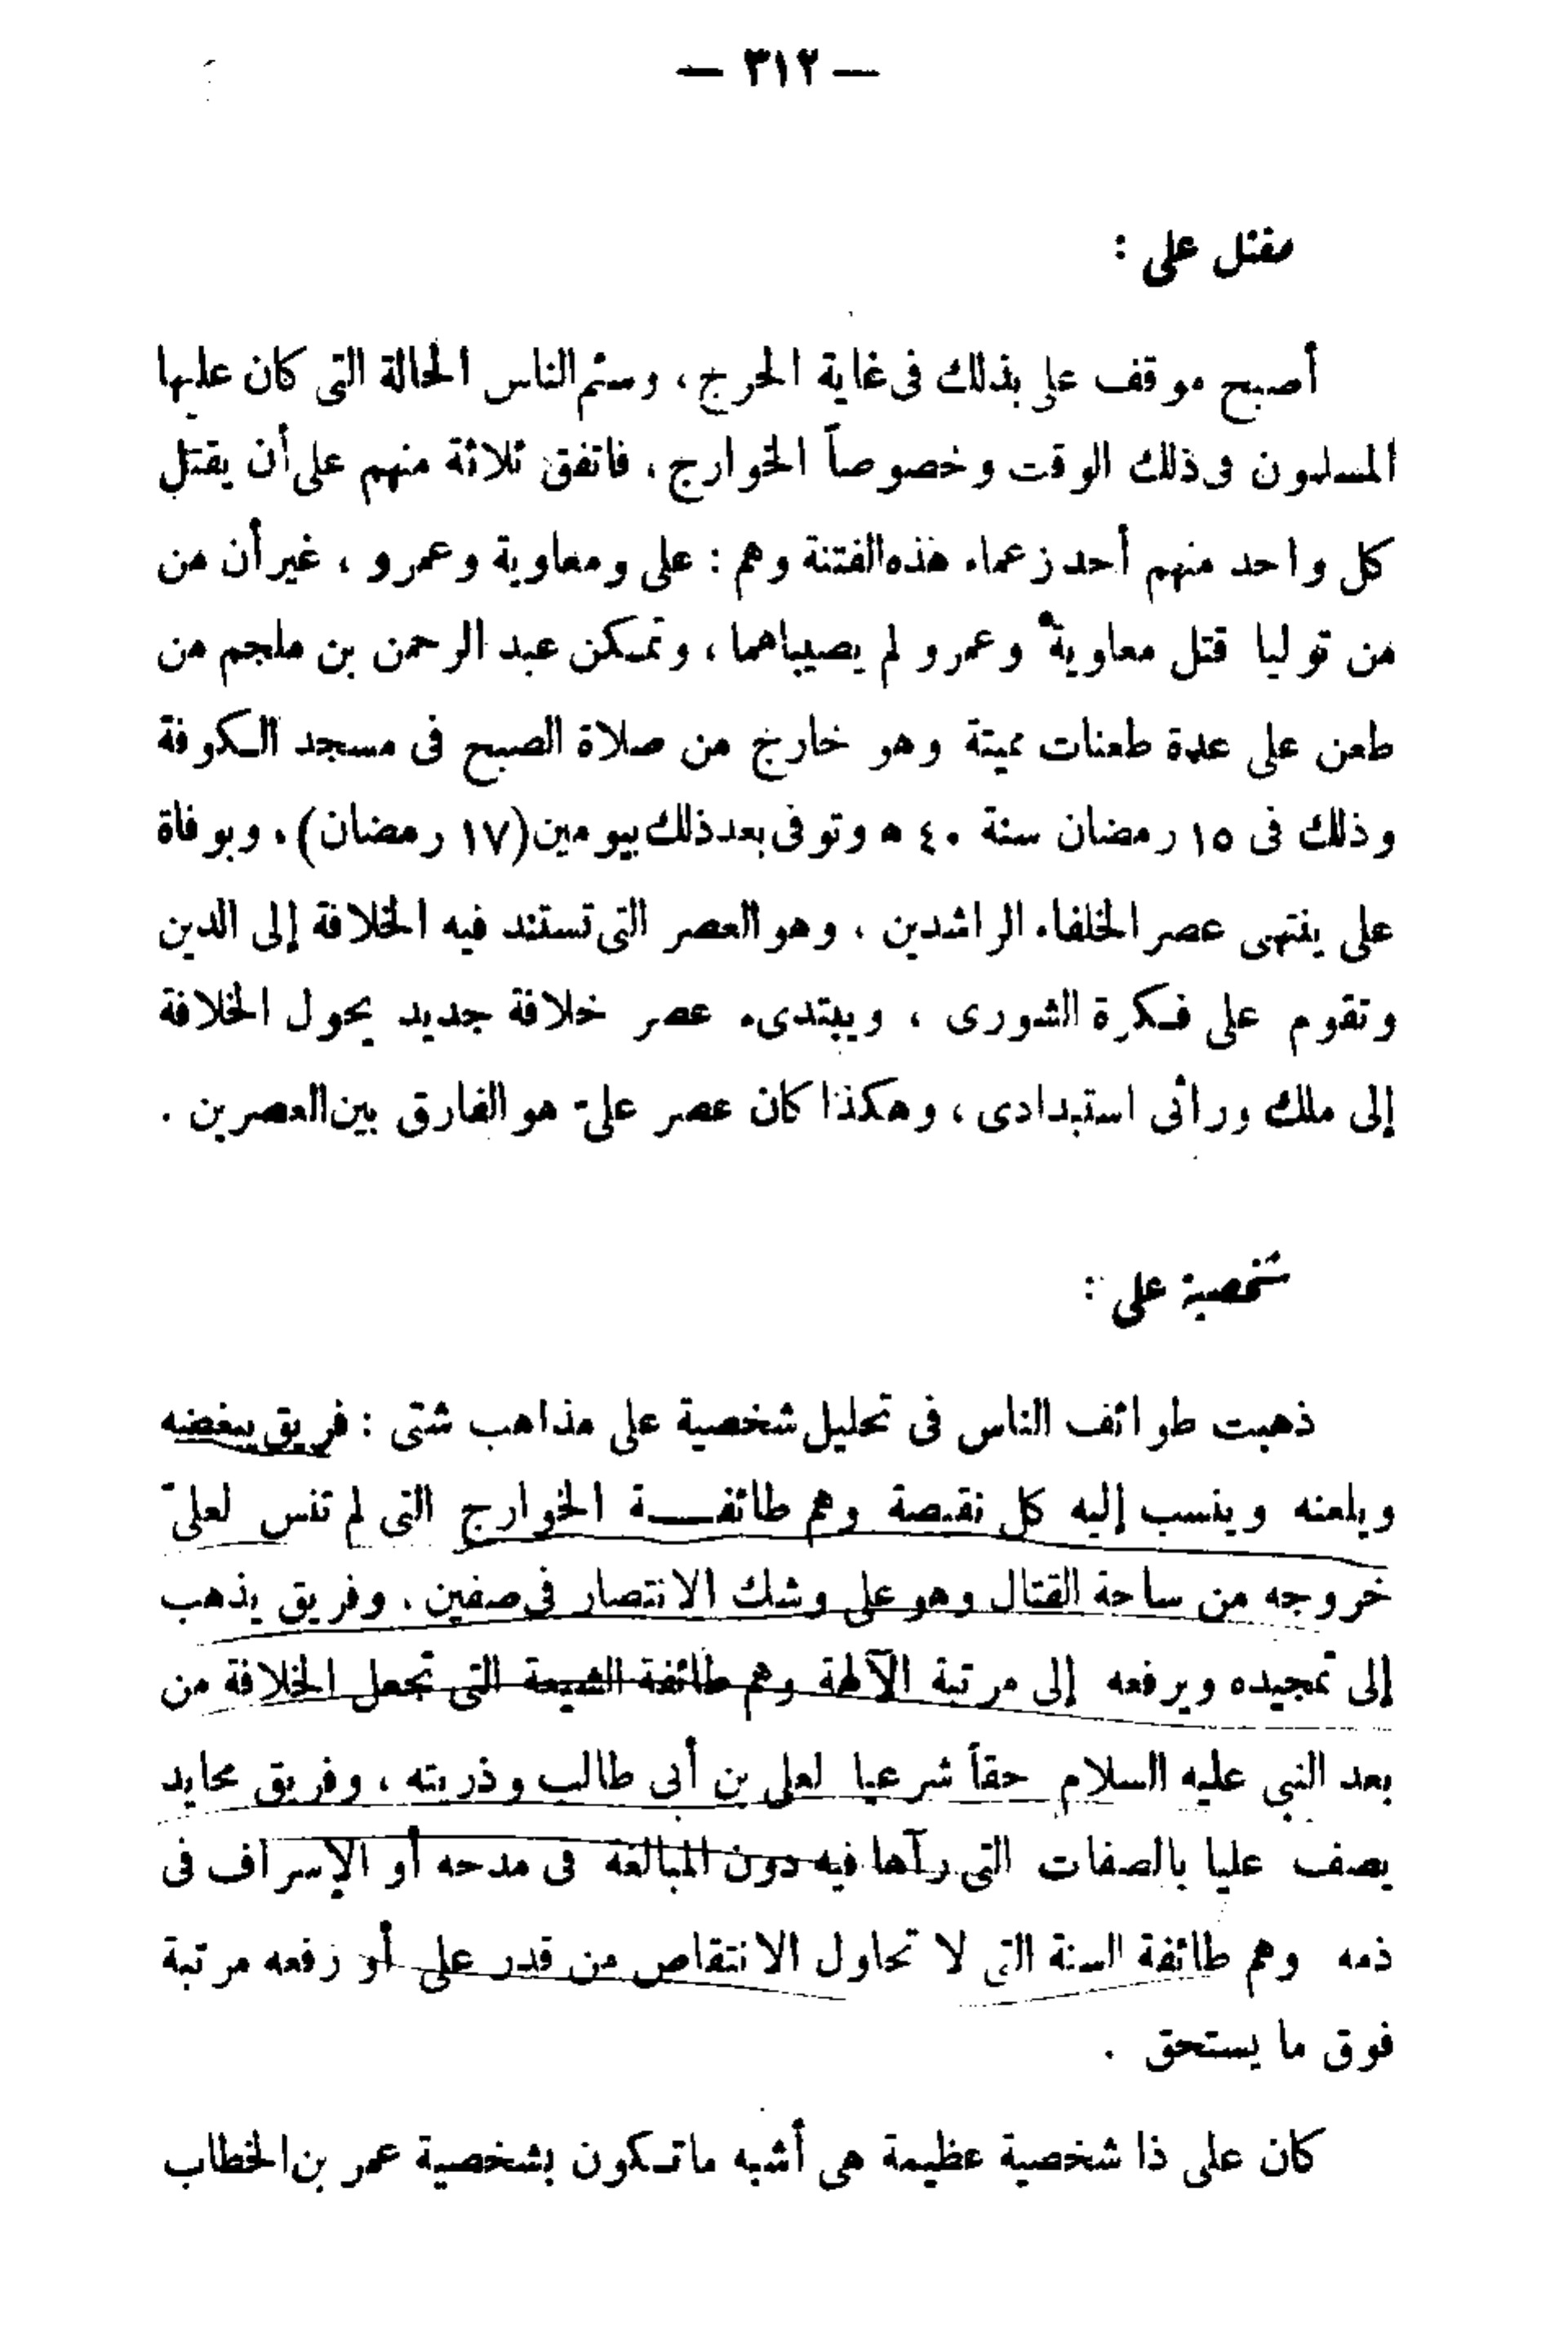 — ٣١٢ —
مقتل على :
أصبح موقف على بذلك فى غاية الحرج ، وسئم الناس الحالة التى كان عليها
المسلمون فى ذلك الوقت وخصوصاً الخوارج ، فاتفق ثلاثة منهم على أن يقتل
كل واحد منهم أحد زعماء هذه الفتنة وهم : على ومعاوية وعمرو ، غير أن من
من توليا قتل معاوية وعمرو لم يصيباهما ، وتمكن عبد الرحمن بن ملجم من
طعن على عدة طعنات مميتة وهو خارج من صلاة الصبح فى مسجد الكوفة
وذلك فى ١٥ رمضان سنة ٤٠ ه وتوفى بعد ذلك بيومين (١٧ رمضان) . وبوفاة
على ينتهى عصر الخلفاء الراشدين ، وهو العصر التى تستند فيه الخلافة إلى الدين
وتقوم على فكرة الشورى ، ويبتدىء عصر خلافة جديد يحول الخلافة
إلى ملك وراثى استبدادى ، وهكذا كان عصر علىّ هو الفارق بين العصرين .
شخصية على :
ذهبت طوائف الناس فى تحليل شخصية على مذاهب شتى : فريق يبغضه
ويلعنه وينسب إليه كل نقيصة وهم طائفـــة الخوارج التى لم تنس لعلىّ
خروجه من ساحة القتال وهو على وشك الانتصار فى صفين . وفريق يذهب
إلى تمجيده ويرفعه إلى مرتبة الآلهة وهم طائفة الشيعة التى تجعل الخلافة من
بعد النبي عليه السلام حقاً شرعيا لعلى بن أبى طالب وذريته ، وفريق محايد
يصف عليا بالصفات التى رآها فيه دون المبالغة فى مدحه أو الإسراف فى
ذمه وهم طائفة السنة التى لا تحاول الانتقاص من قدر على أو رفعه مرتبة
فوق ما يستحق .
كان على ذا شخصية عظيمة هى أشبه ماتكون بشخصية عمر بن الخطاب